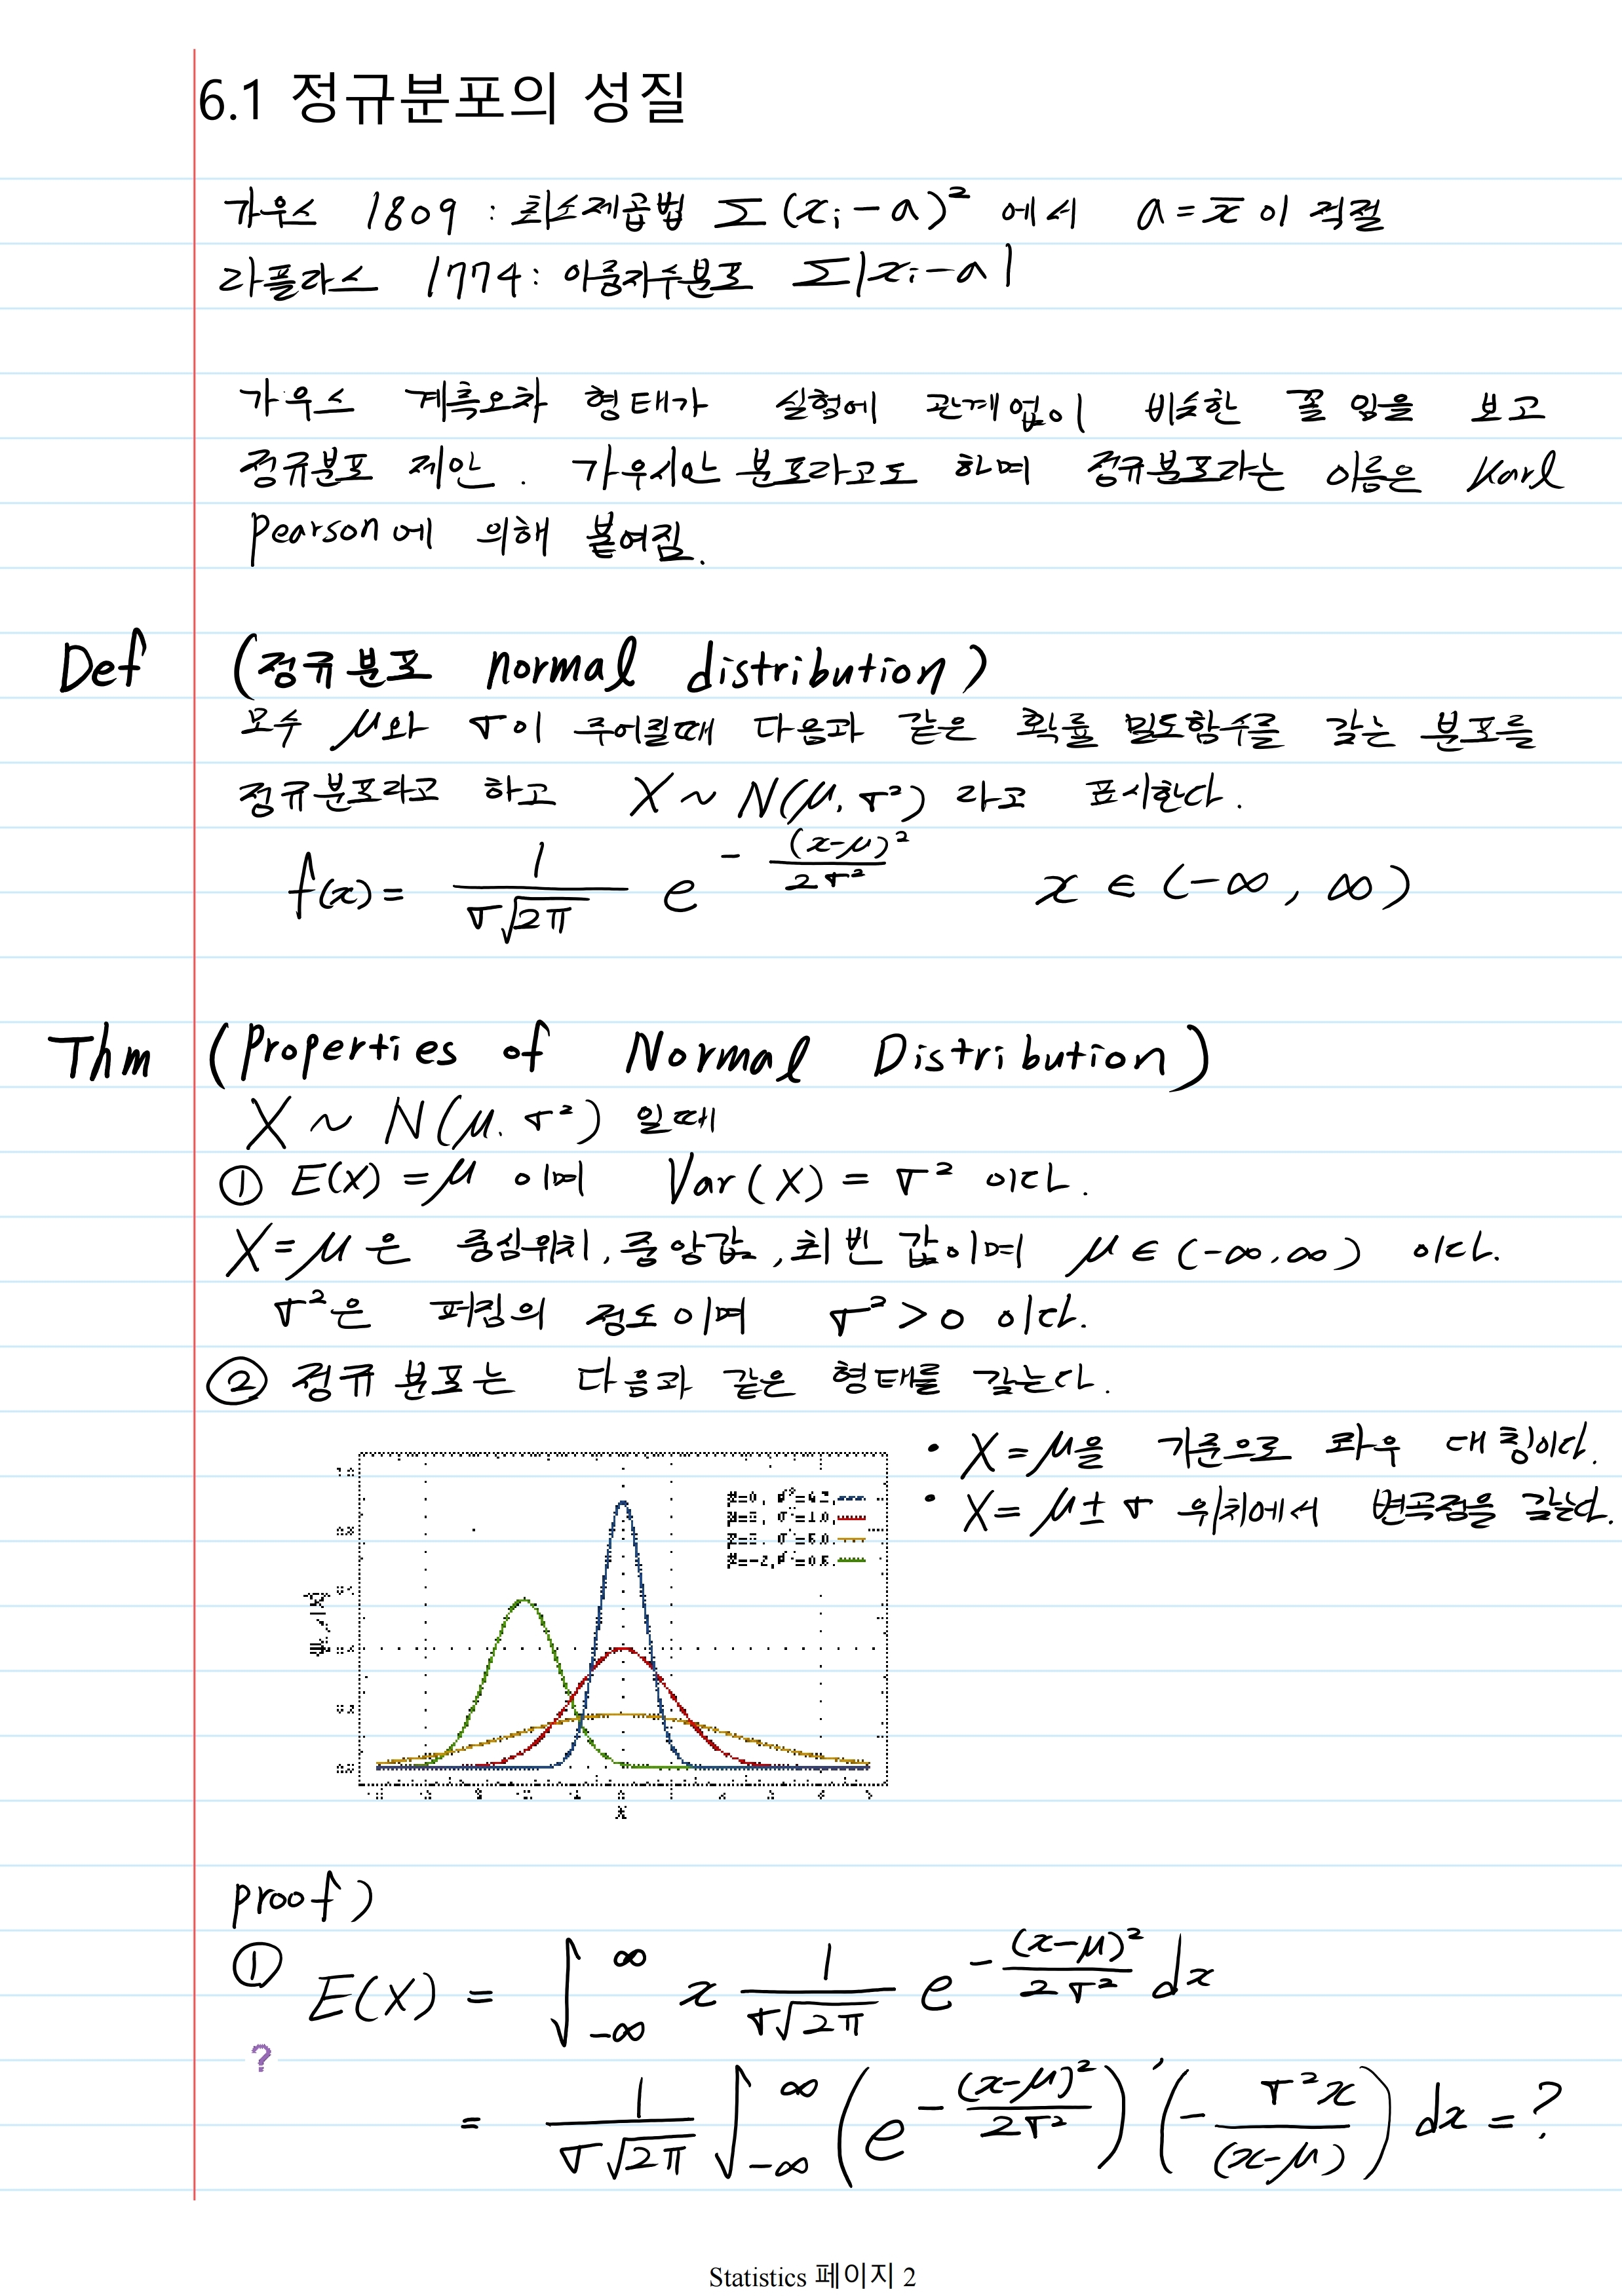 6.1 정규분포의 성질
가우스 1809 : 최소제곱법 ∑(xᵢ-a)² 에서 a = x̄ 이 적절
라플라스 1774 : 이중지수분포 ∑|xᵢ-a|
가우스 계측오차 형태가 실험에 관계없이 비슷한 꼴 임을 보고
정규분포 제안. 가우시안 분포라고도 하며 정규분포라는 이름은 Karl
Pearson에 의해 붙여짐.
Def (정규분포 normal distribution)
모수 μ와 σ이 주어질때 다음과 같은 확률 밀도함수를 갖는 분포를
정규분포라고 하고 X ~ N(μ, σ²) 라고 표시한다.
f(x) = 1/(σ√2π) e^(-(x-μ)²/2σ²) x ∈ (-∞, ∞)
Thm (Properties of Normal Distribution)
X ~ N(μ, σ²) 일때
① E(X) = μ 이며 Var(X) = σ² 이다.
X = μ 은 중심위치, 중앙값, 최빈값이며 μ ∈ (-∞, ∞) 이다.
σ²은 퍼짐의 정도이며 σ² > 0 이다.
② 정규분포는 다음과 같은 형태를 갖는다.
• X = μ을 기준으로 좌우 대칭이다.
• X = μ ± σ 위치에서 변곡점을 갖는다.
proof)
① E(X) = ∫_{-∞}^{∞} x 1/(σ√2π) e^(-(x-μ)²/2σ²) dx
?
= 1/(σ√2π) ∫_{-∞}^{∞} (e^(-(x-μ)²/2σ²))' (- σ²x/(x-μ)) dx = ?
Statistics 페이지 2